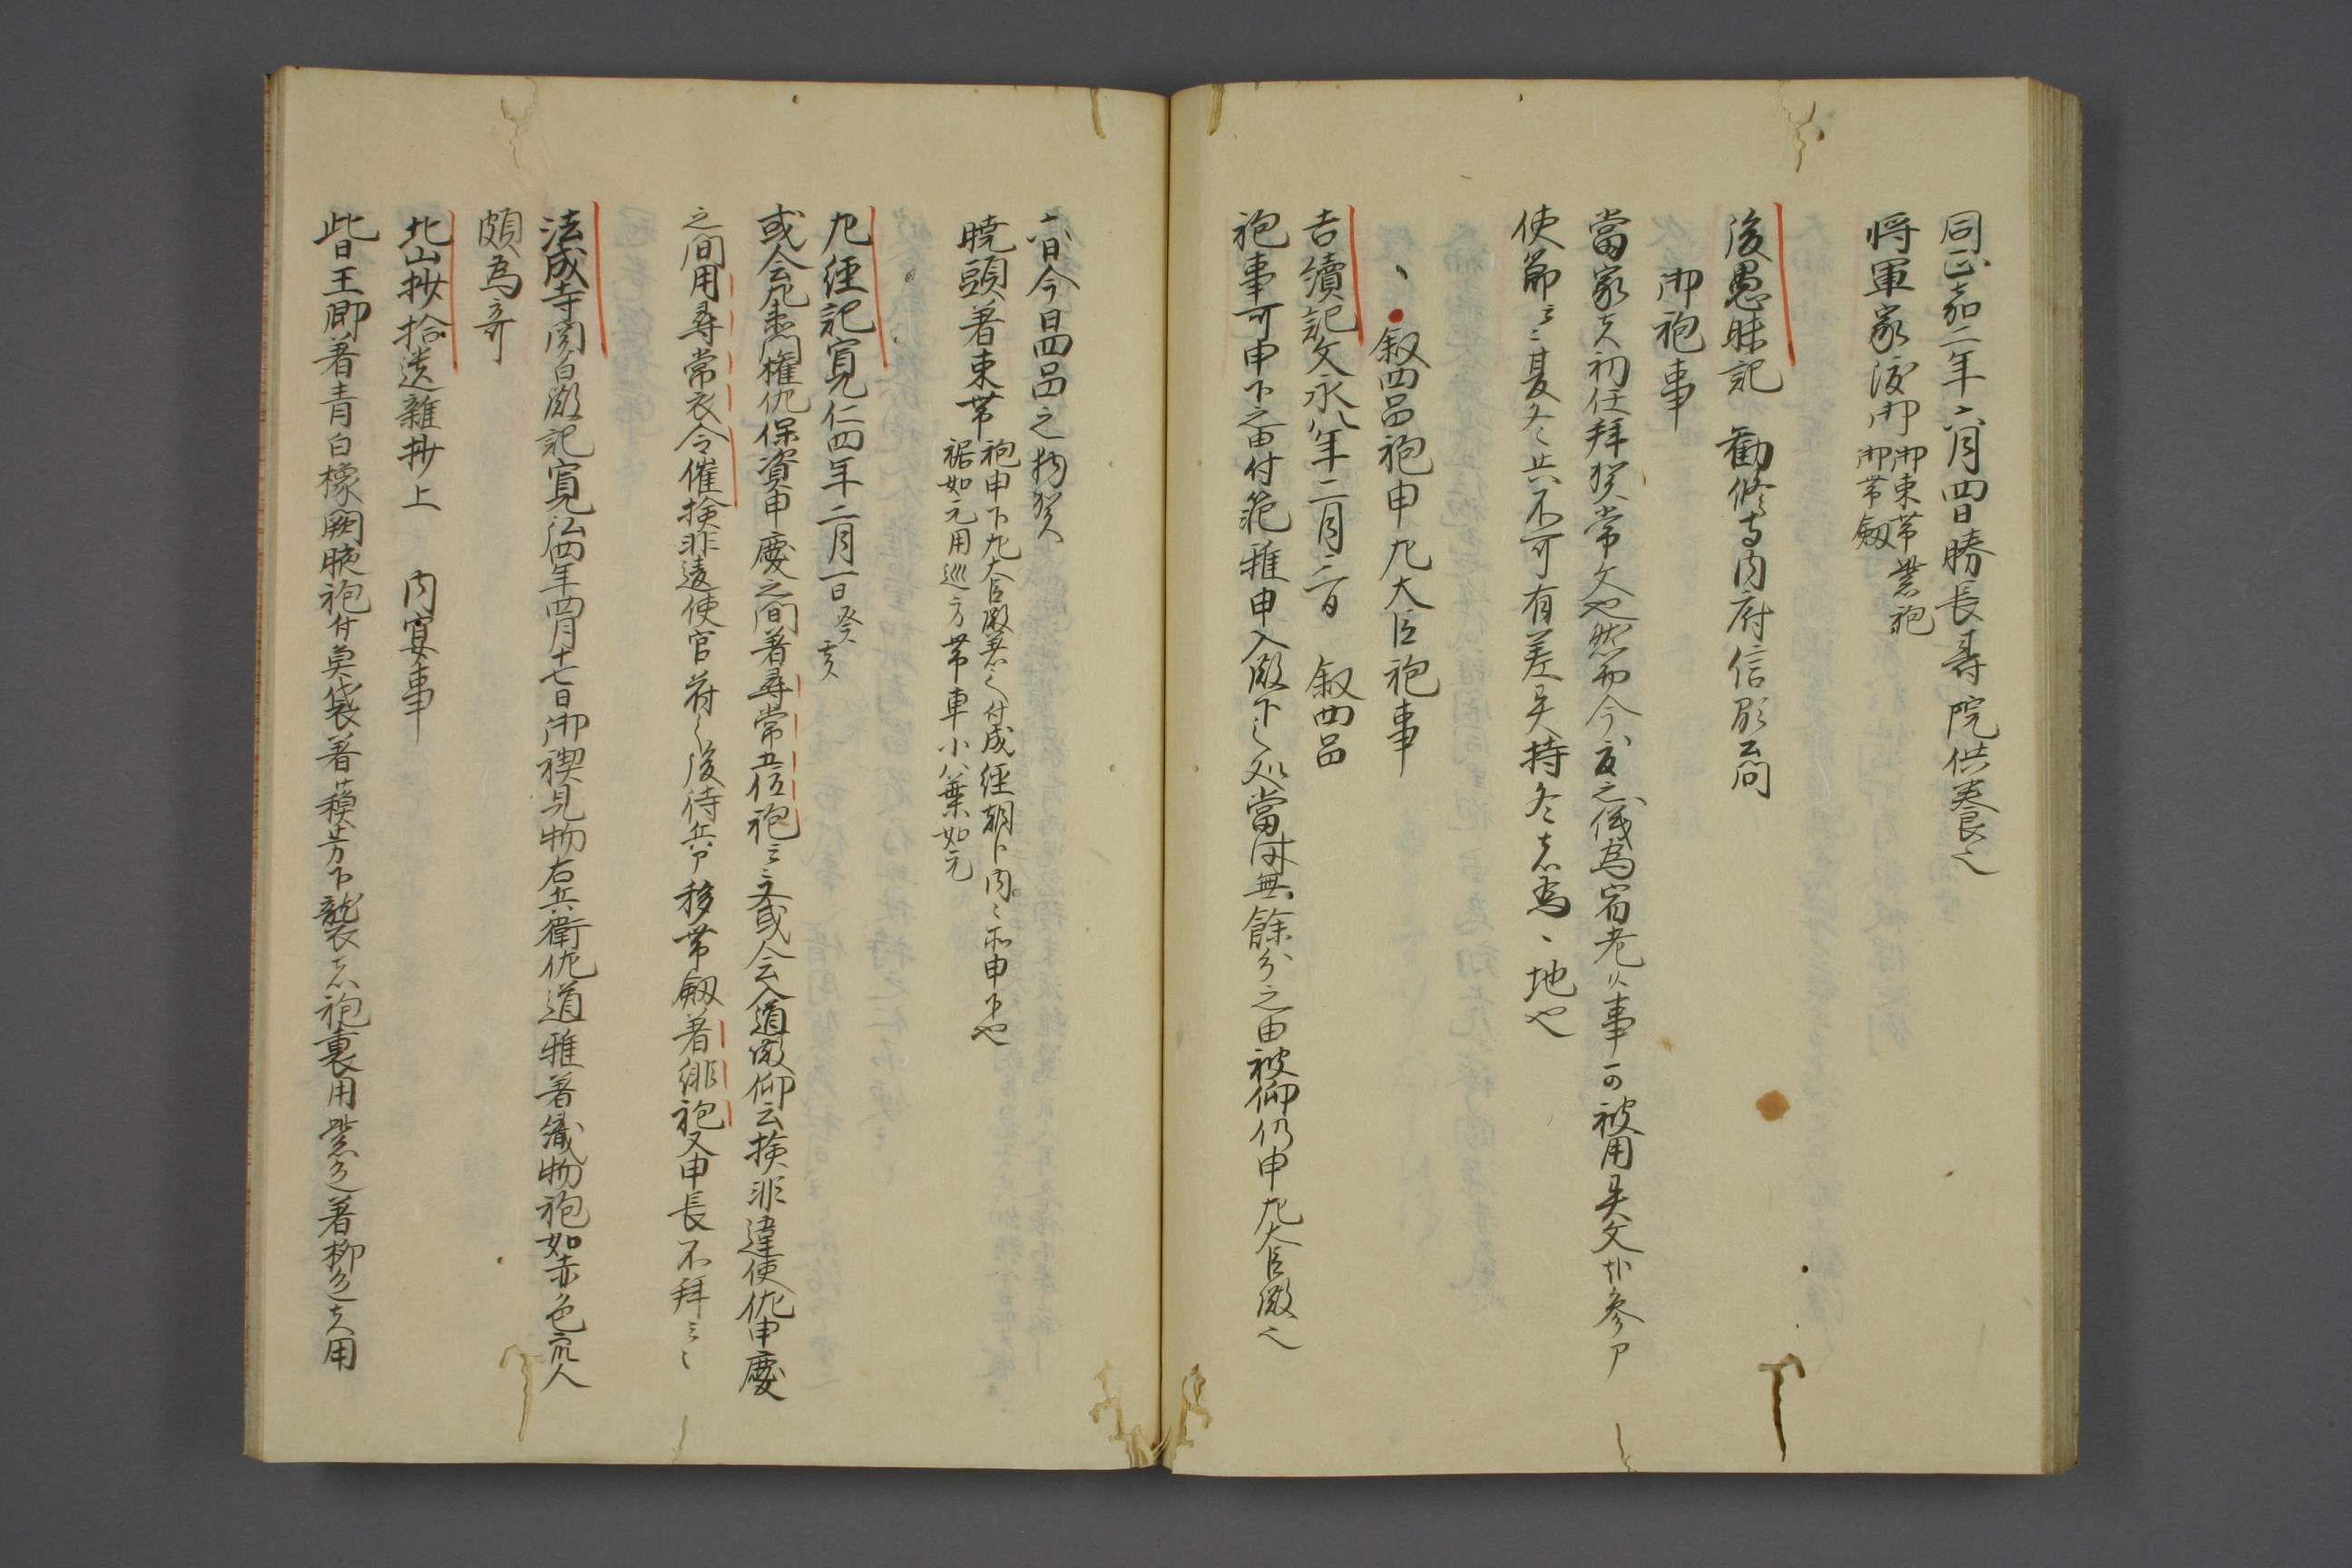 同正嘉二年六月四日勝長寿院供養之
将軍家渡御御束帯紫袍
御帯劔
後愚昧記　勧修寺内府信弘公問
御袍事
當家者初任拝賀常文也然而今度之儀為宿老以事可被用異文於参
使節云々夏冬共不可有差異持冬者為、地也
、叙四品袍申九大臣袍事
吉續記文永八年二月二日　叙四品
袍事可申下之由付範雅申入殿下之処當時無餘分之由被仰仍申九大臣殿之
六日今日四品之拘賀
暁頭著束帯袍申下九大臣殿著之付成経朝臣内々所申下也
裾如元用巡方帯車小八葉如元
九経記寛仁四年二月一日癸亥
或令云左衛門権佐保資申慶之間著尋常五位袍云々又或令云入道殿仰云検非違使佐申慶
之間用尋常衣令催検非違使官符之後待兵了移帯劔著緋袍又申長不拝云々
法成寺関白殿記寛治四年四月十七日御禊見物右兵衛佐道雅著織物袍如赤色衆人
頗為奇
北山抄拾遺雑抄上　内宴事
此日王卿著青白橡闕腋袍付魚袋著蘇芳下襲者袍裏用紫色著柳色者用